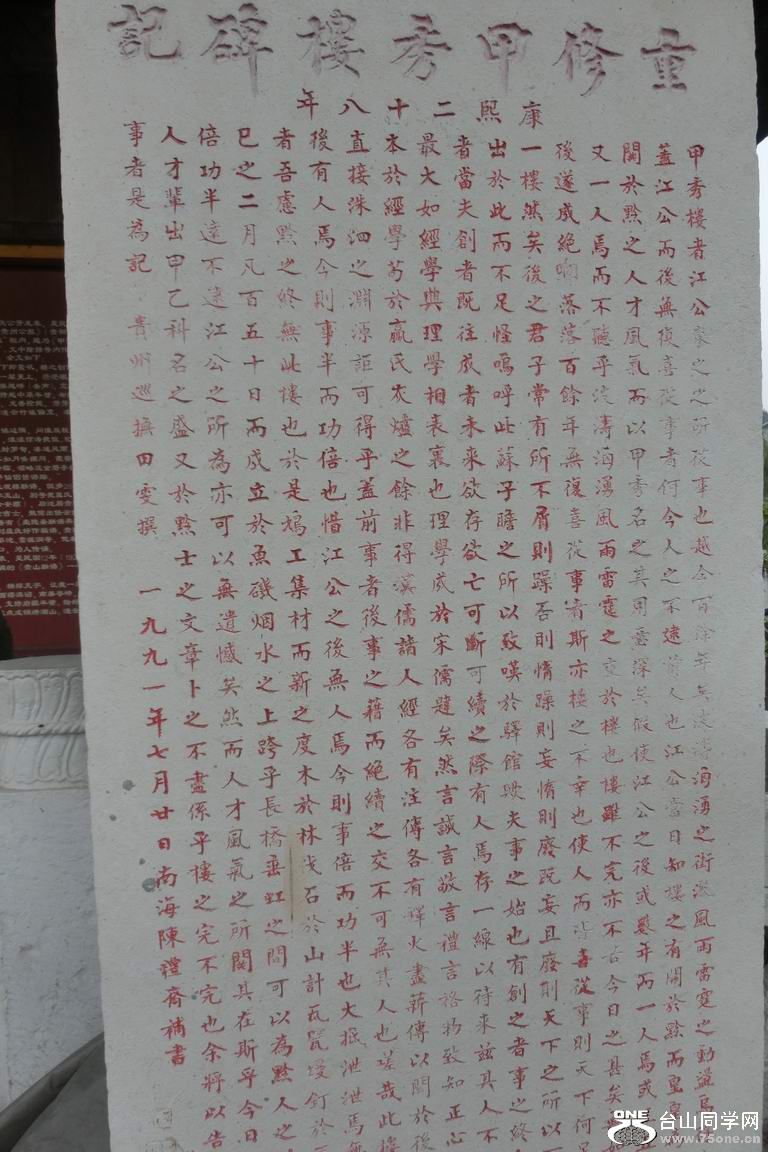 重修甲秀樓碑記
康熙二十八年
甲秀樓者江公東之之所從事也越今百餘年矣波濤洶湧之衝激風雨雷霆之動盪
蓋江公而後無復喜從事者何今人之不逮前人也江公當日知樓之有關於黔而
關於黔之人才風氣而以甲秀名之其用意深矣假使江公之後或數年而一人焉或
又一人焉而不聽乎波濤洶湧風雨雷霆之交於樓也樓雖不完亦不若今日之甚矣
後遂成絕响落落百餘年無復喜從事者斯亦樓之不幸也使人而皆喜從事則天下何
一樓然矣後之君子常有所不屑則躁否則惰躁則妄惰則廢既妄且廢則天下之所以
出於此而不足怪嗚呼此蘇子瞻之所以致嘆於驛館歟夫事之始也有創之者事之終
者當夫創者既往成者未來欲存欲亡可斷可續之際有人焉存一線以待來茲其人不
最大如經學與理學相表裏也理學成於宋儒韙矣然言誠言敬言禮言格物致知正心
本於經學芴於嬴氏灰爐之餘非得漢儒諸人經各有注傳各有釋火盡薪傳以開於後
直接洙泗之淵源詎可得乎蓋前事者後事之藉而絕續之交不可無其人也嗟哉此樓
後有人焉今則事半而功倍也惜江公之後無人焉今則事倍而功半也大抵泄泄焉無
者吾慮黔之終無此樓也於是鳩工集材而新之度木於林伐石於山計瓦甓墁釘於
巳之二月凡百五十日而成立於魚磯烟水之上跨乎長橋垂虹之間可以為黔人之
倍功半遠不逮江公之所為亦可以無遺憾矣然而人才風氣之所關其在斯乎今日
人才輩出甲乙科名之盛又於黔士之文章卜之不盡係乎樓之完不完也余將以告
事者是為記 貴州巡撫田雯撰 一九九一年七月廿日南海陳禮齋補書
ONE
台山同学网
www.75one.cn